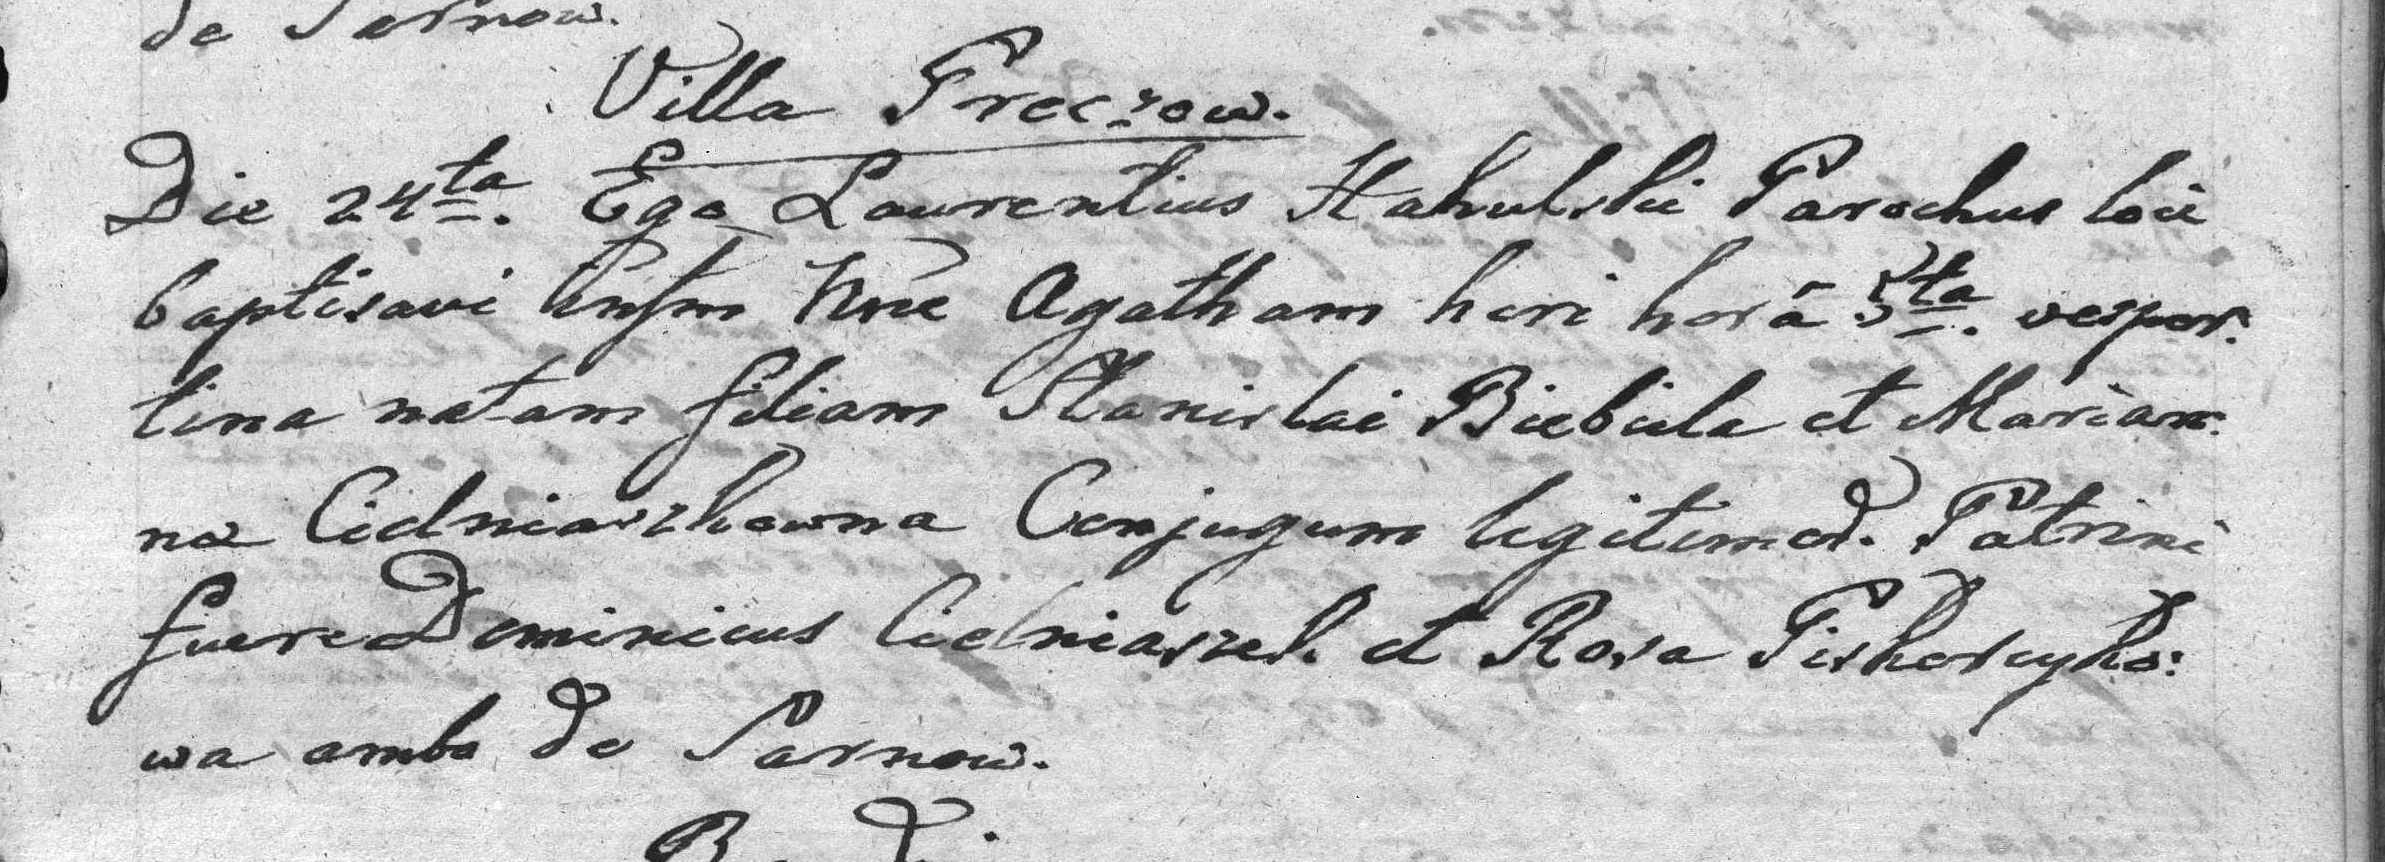 de Sarnow.
Villa Preczow.
Die 24ta. Ego Laurentius Stahulski Parochus loci
baptisavi Infm Nne Agatham heri horâ 5ta. vesper:
tina natam filiam Stanislai Biebiela et Marian:
na Cielniaszkowna Conjugum legitimor. Patrini
fuere Dominicus Cielniaszek et Rosa Piskorczyko:
wa ambo de Sarnow.